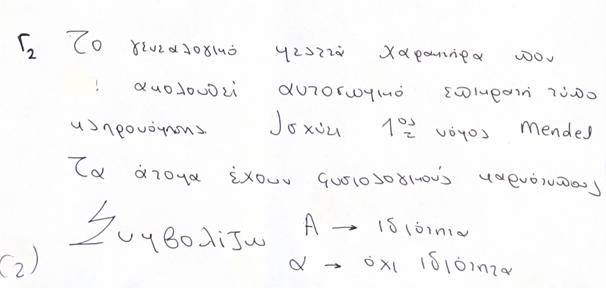 Γ₂ Το γενεαλογικό μελετά χαρακτήρα που
ακολουθεί αυτοσωμικό επικρατή τύπο
κληρονόμησης Ισχύει 1ος νόμος Mendel
Τα άτομα έχουν φυσιολογικούς καρυότυπους
Συμβολίζω A → ιδιότητα
α → όχι ιδιότητα
(2)